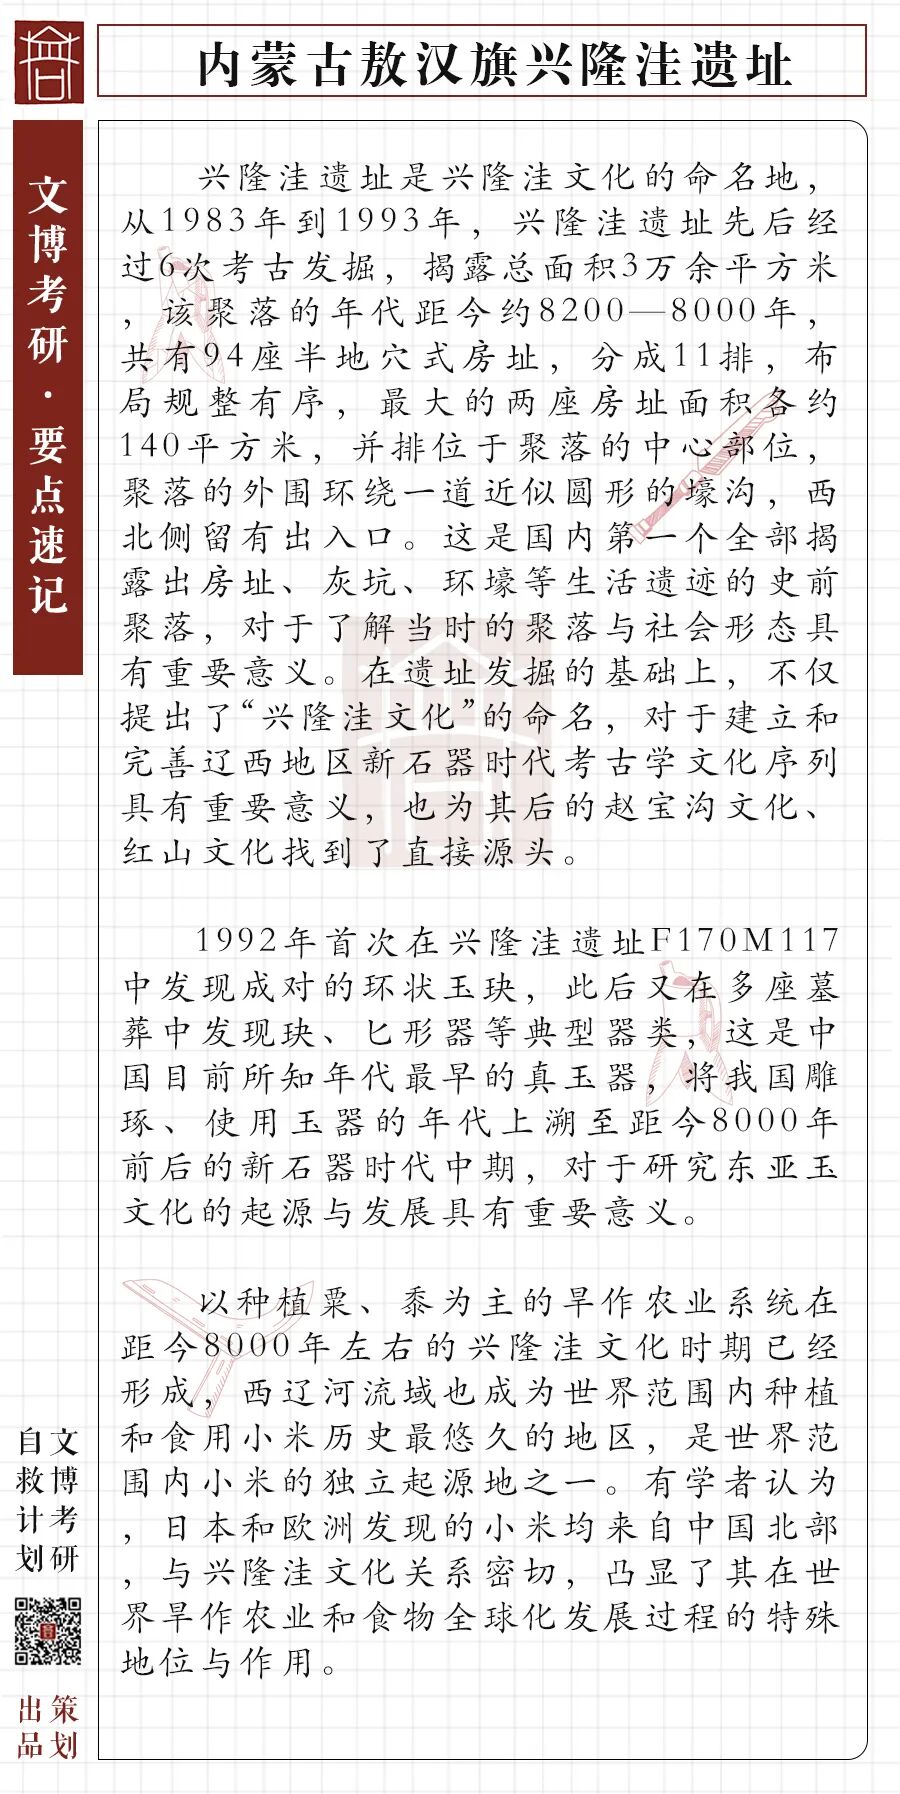 内蒙古敖汉旗兴隆洼遗址
文博考研·要点速记
兴隆洼遗址是兴隆洼文化的命名地，
从1983年到1993年，兴隆洼遗址先后经
过6次考古发掘，揭露总面积3万余平方米
，该聚落的年代距今约8200—8000年，
共有94座半地穴式房址，分成11排，布
局规整有序，最大的两座房址面积各约
140平方米，并排位于聚落的中心部位，
聚落的外围环绕一道近似圆形的壕沟，西
北侧留有出入口。这是国内第一个全部揭
露出房址、灰坑、环壕等生活遗迹的史前
聚落，对于了解当时的聚落与社会形态具
有重要意义。在遗址发掘的基础上，不仅
提出了“兴隆洼文化”的命名，对于建立和
完善辽西地区新石器时代考古学文化序列
具有重要意义，也为其后的赵宝沟文化、
红山文化找到了直接源头。
1992年首次在兴隆洼遗址F170M117
中发现成对的环状玉玦，此后又在多座墓
葬中发现玦、匕形器等典型器类，这是中
国目前所知年代最早的真玉器，将我国雕
琢、使用玉器的年代上溯至距今8000年
前后的新石器时代中期，对于研究东亚玉
文化的起源与发展具有重要意义。
以种植粟、黍为主的旱作农业系统在
距今8000年左右的兴隆洼文化时期已经
形成，西辽河流域也成为世界范围内种植
和食用小米历史最悠久的地区，是世界范
围内小米的独立起源地之一。有学者认为
，日本和欧洲发现的小米均来自中国北部
，与兴隆洼文化关系密切，凸显了其在世
界旱作农业和食物全球化发展过程的特殊
地位与作用。
文博考研
自救计划
策划
出品